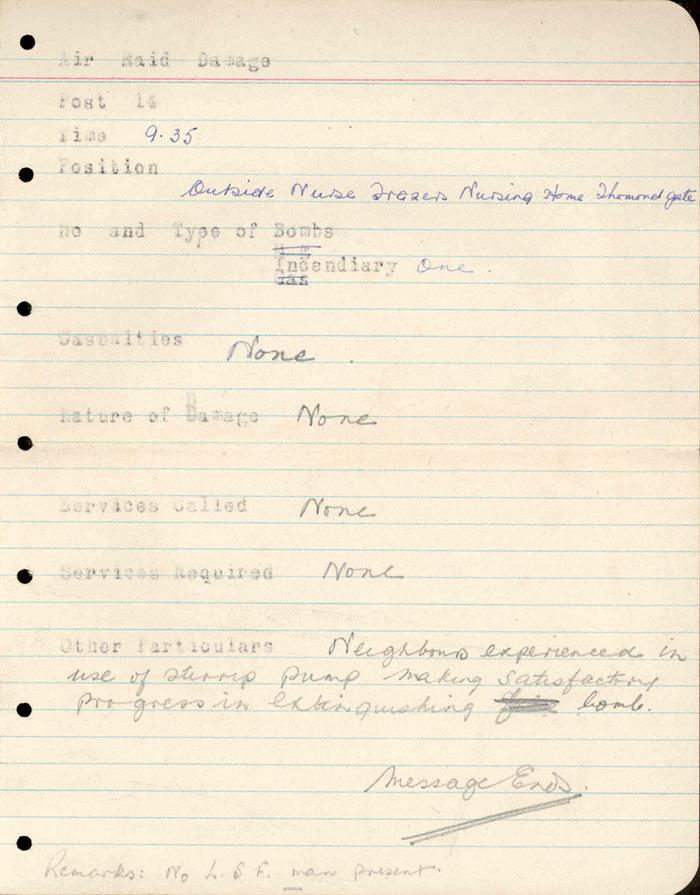 Air Raid Damage
Post 14
Time 9.35
Position
Outside Nurse Frazers Nursing Home Thomondgate
No and Type of Bombs
H E
Incendiary One.
Gas
Casualties None.
Nature of Damage None
Services Called None
Services Required None
Other Particulars Neighbours experienced in
use of stirrup pump making satisfactory
progress in extinguishing bomb.
Message Ends.
Remarks: No L.S.F. man present.